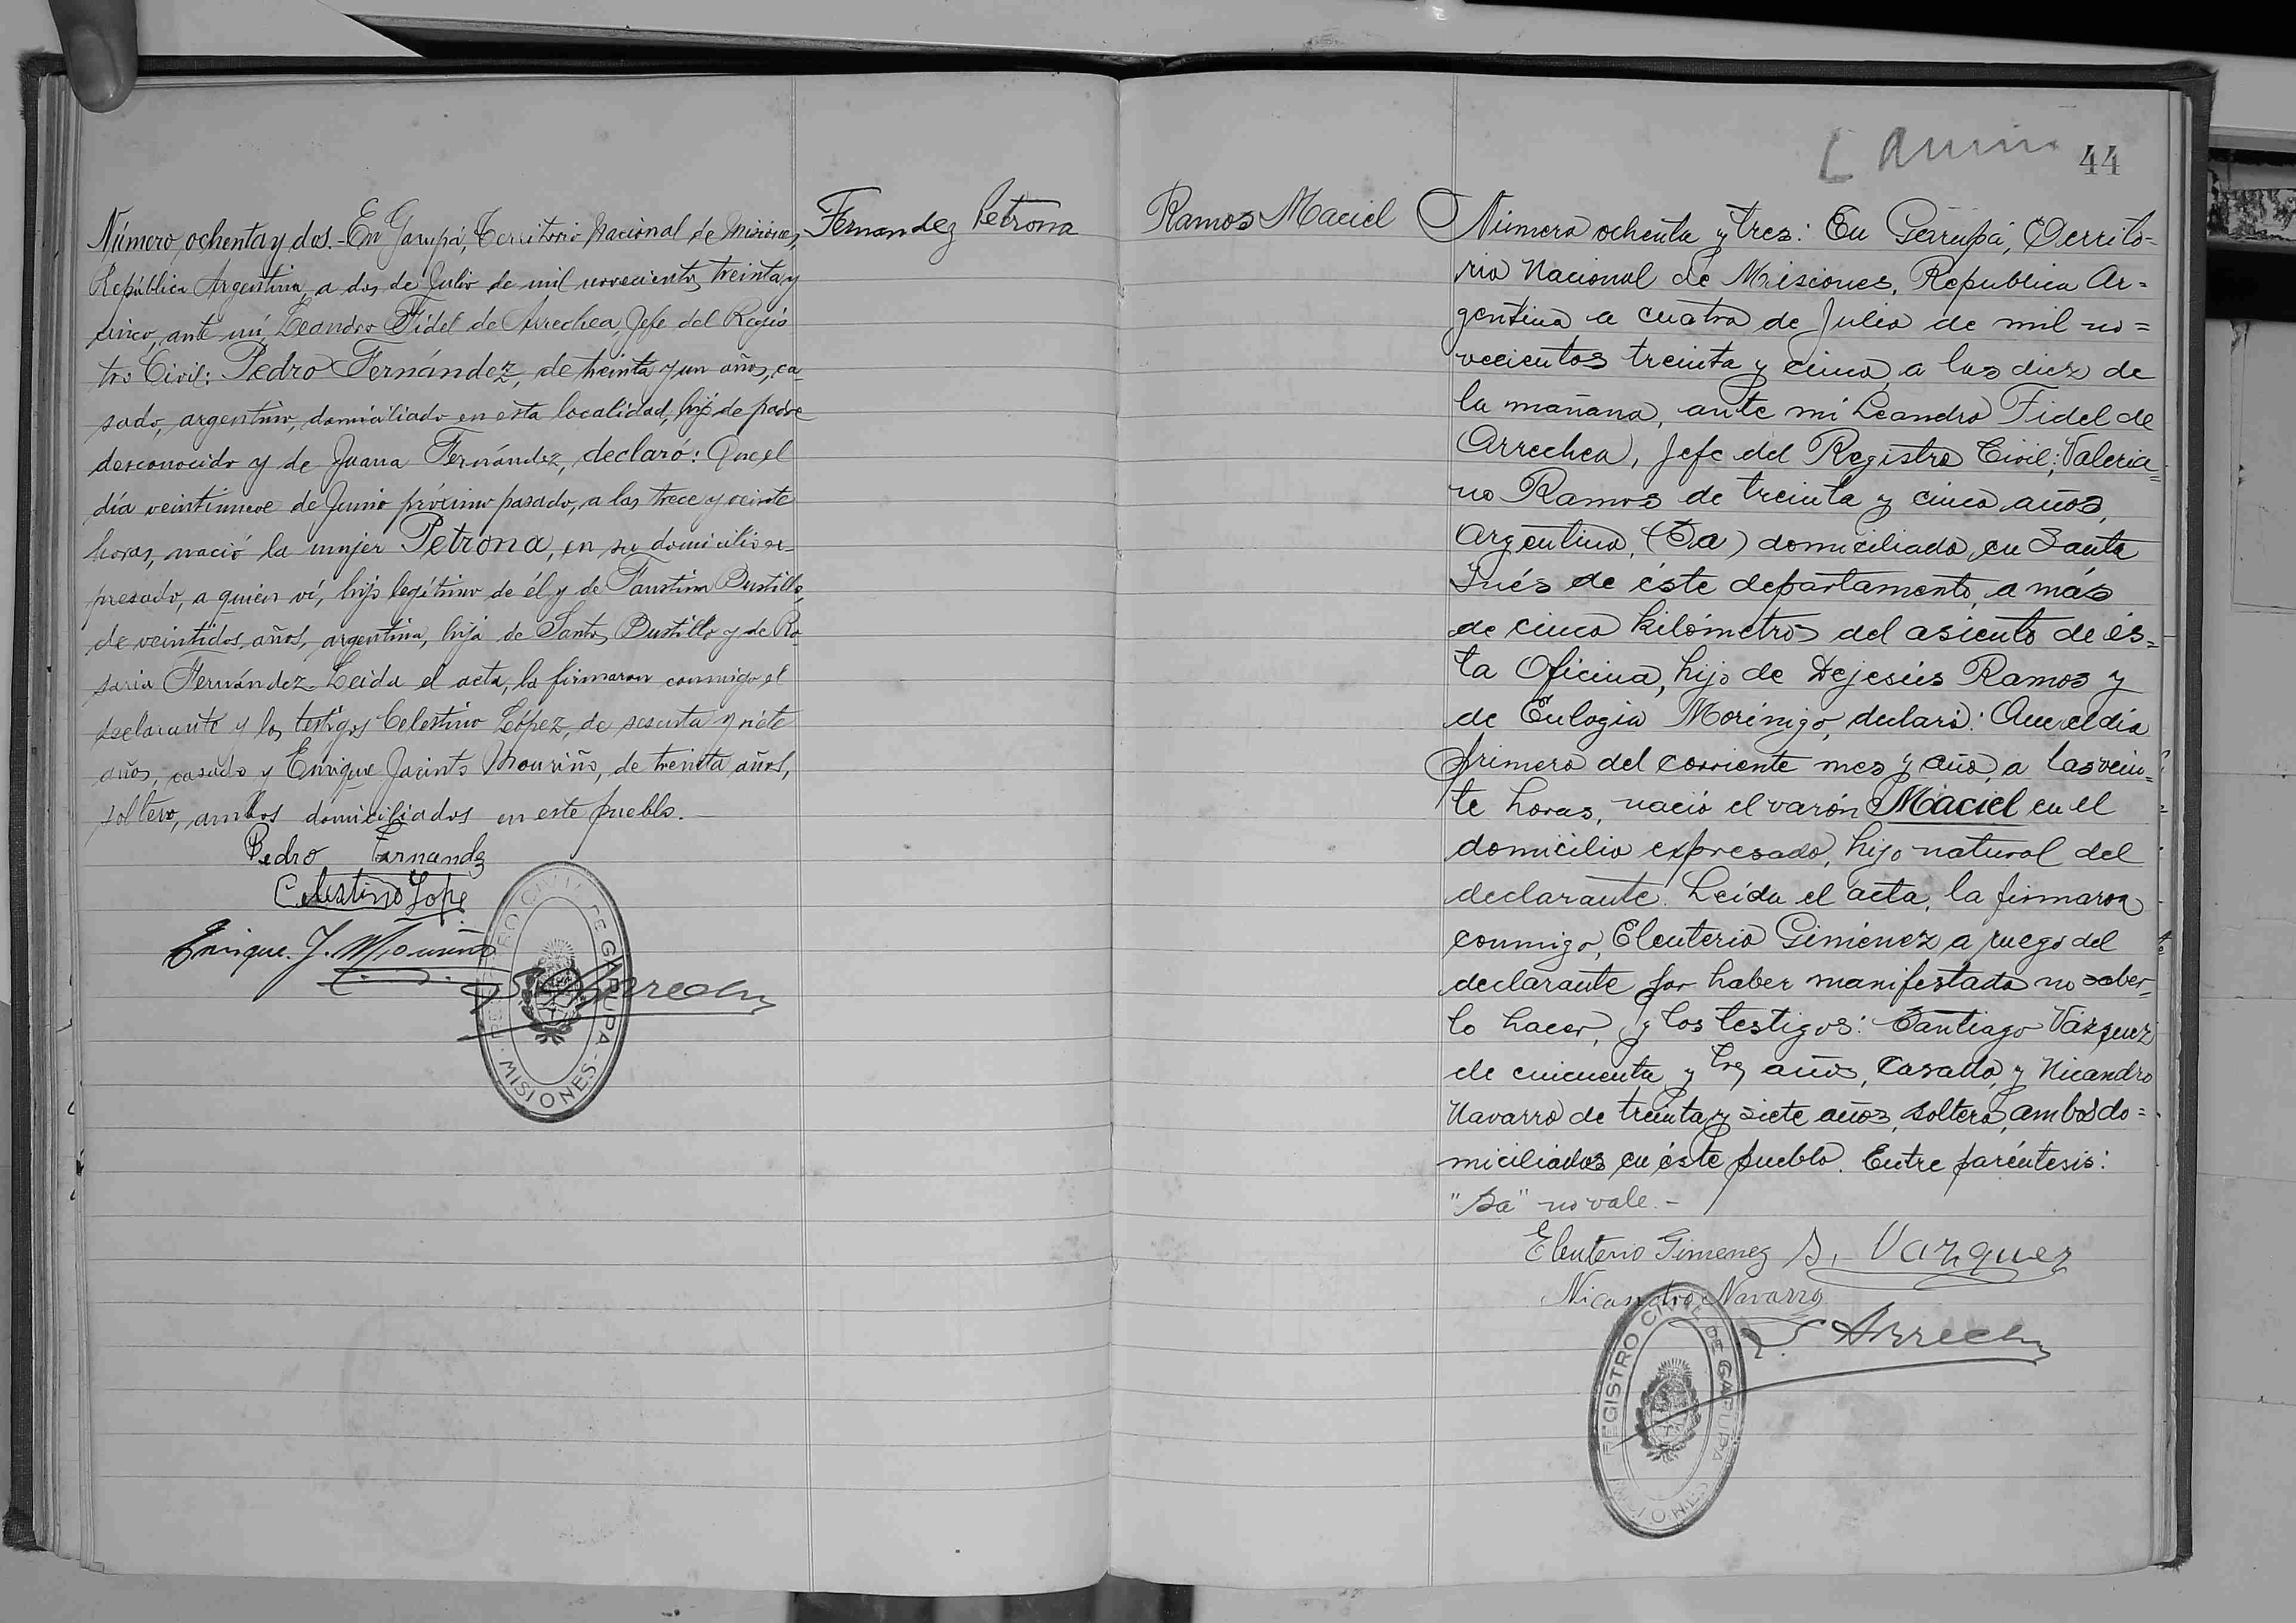 Número ochenta y dos.- En Garupá, Territorio Nacional de Misiones,
República Argentina, a dos de Julio de mil novecientos treinta y
cinco, ante mí, Leandro Fidel de Arrechea, Jefe del Regis
tro Civil: Pedro Fernández, de treinta y un años, ca-
sado, argentino, domiciliado en esta localidad, hijo de padre
desconocido y de Juana Fernández, declaró: Que el
día veintinueve de Junio próximo pasado, a las trece y veinte
horas, nació la mujer Petrona, en su domicilio ex-
presado, a quien ví, hija legítima de él y de Faustina Bustillo,
de veintidos años, argentina, hija de Santos Bustillo y de Ro-
saria Fernández. Leida el acta, la firmaron conmigo el
declarante y los testigos Celestino López, de sesenta y siete
años, casado y Enrique Jacinto Mouriño, de treinta años,
soltero, ambos domiciliados en este pueblo.-
Pedro Fernandz
Celestino Lope
Enrique. J. Mouriño
L Arrechea
REGISTRO CIVIL DE GARUPA
- MISIONES -
Fernandez Petrona
44
Ramos Maciel
Número ochenta y tres: En Garrupá, Territo=
rio Nacional de Misiones, Republica Ar=
gentina a cuatro de Julio de mil no=
vecientos treinta y cinco, a las diez de
la mañana, ante mi Leandro Fidel de
Arrechea, Jefe del Registro Civil; Valeria=
no Ramos de treinta y cinco años,
Argentino, (Sa) domiciliado en Santa
Inés de éste departamento, a más
de cinco kilómetros del asiento de és=
ta Oficina, hijo de Dejesús Ramos y
de Eulogia Morinigo, declaró: Que el día
primero del corriente mes y año, a las vein=
te horas, nació el varón Maciel en el
domicilio expresado, hijo natural del
declarante. Leída el acta, la firmaron
conmigo, Eleuterio Giménez a ruego del
declarante por haber manifestado no saber=
lo hacer, y los testigos: Santiago Vázquez
de cincuenta y tres años, casado, y Nicandro
Navarro de treinta y siete años, soltero, ambos do=
miciliados en éste pueblo. Entre paréntesis:
"Sa" no vale.-
Eleuterio Gimenez S. Vazquez
Nicandro Navarro
L Arrechea
REGISTRO CIVIL DE GARUPA
MISIONES